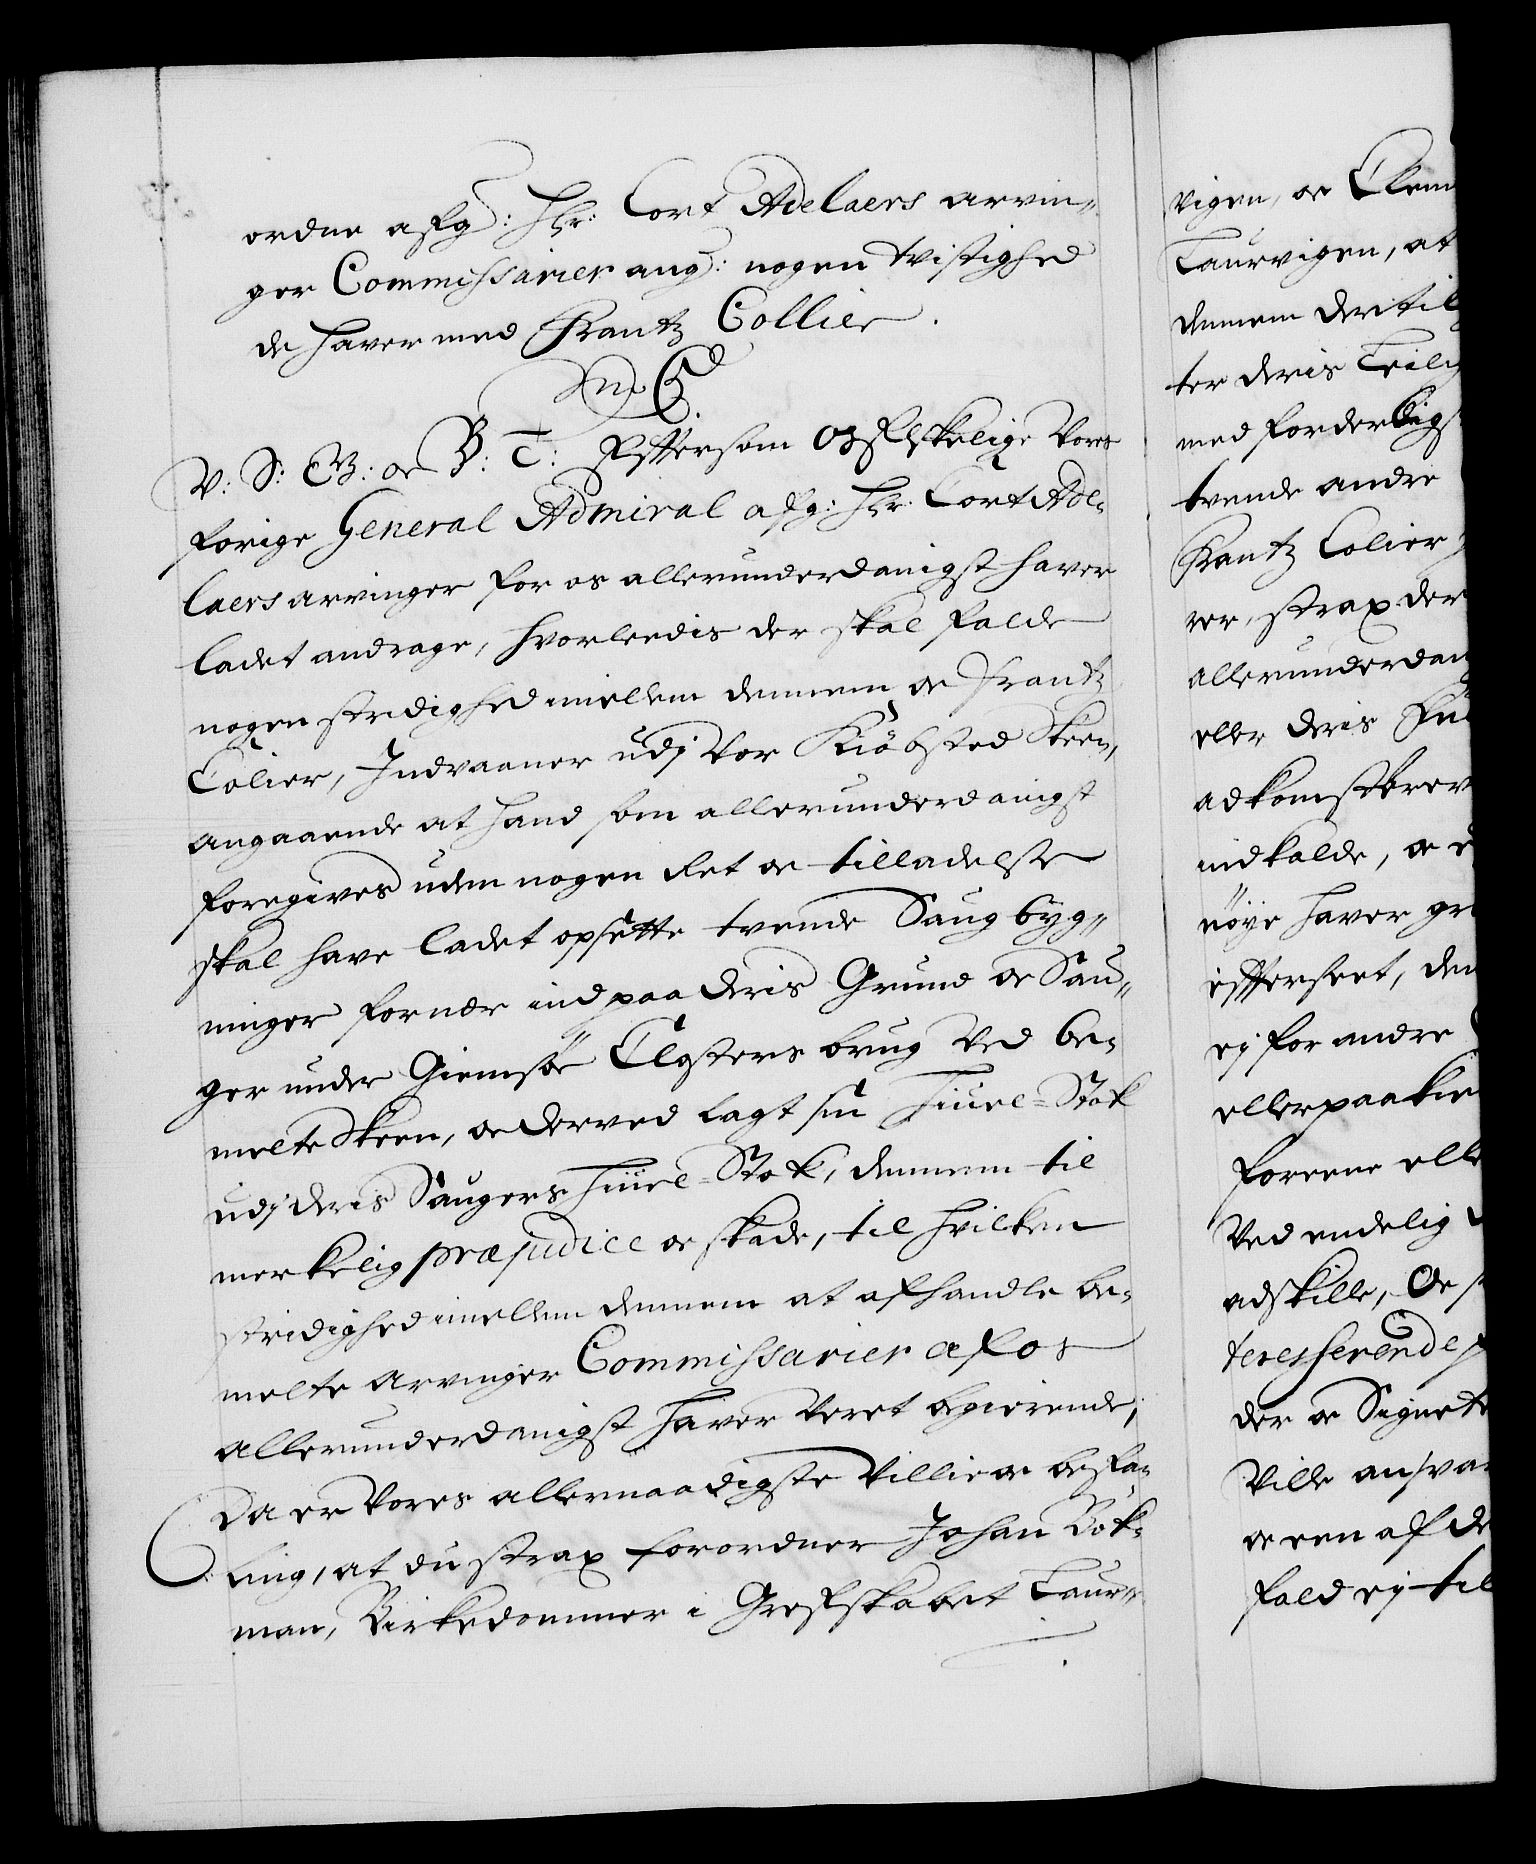 ordne afg: Hr: Cort Adelaers arvin„
ger Commissarier ang: nogen tvistighed
de hafver med Frantz Collier.
C5
V: S: G: oc B: T: Eftersom Os Elskelige Vores
forige General Admiral afg: Hr: Cort Ade„
laers arvinger for os allerunderdanigst hafver
ladet andrage, hvorleedis der skal falde
nogen stridighed imellem dennem oc Frantz
Colier, Indvaaner udj Vor Kiöbsted Skeen,
angaaende at hand som allerunderdanigst
foregives uden nogen Ret oc tilladelse
skal hafve ladet opsette tvende Saug byg„
ninger for nær ind paa deris Grund oc Sau„
ger under Giemsöe Closters brug Ved be„
melte Skeen, oc derved lagt sin Hiuel-Stok
udj deris Saugers Hiuel-Stok, dennem til
merkelig præjudice oc skade, til hvilken
stridighed imellem dennem at afhandle be„
melte arvinger Commissarier af os
allerunderdanigst hafver Veret begierende;
Da er Vores allernaadigste Villie oc befa„
ling, at du strax forordner Johan Bök„
man, Birkedommer i Grefskabet Laur„
vigen, oc Clem
Laurvigen, at
dennem dertil
ter deris Leilig
med forderligst
tvende andre
Frantz Colier
rer, strax der
allerunderdan
eller deris Fu
adkomstbrev
indkalde, oc
nöye hafver gr
efterseet, den
ej for andre
eller paa kie
foreene elle
Ved endelig
adskille, Oc
teresserende
der oc Signete
Ville ansva
oc een af de
fald ej til